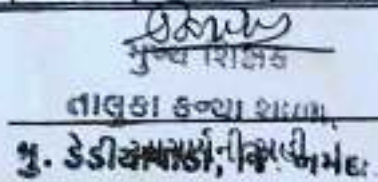 મુખ્ય શિક્ષક
તાલુકા કન્યા શાળા,
મુ. ડેડીયાપાડા, જિ. નર્મદા